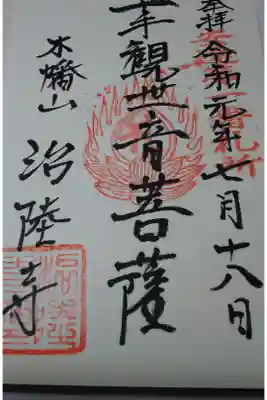 奉拝 令和元年七月十八日
手觀世音菩薩
木幡山 治陸寺